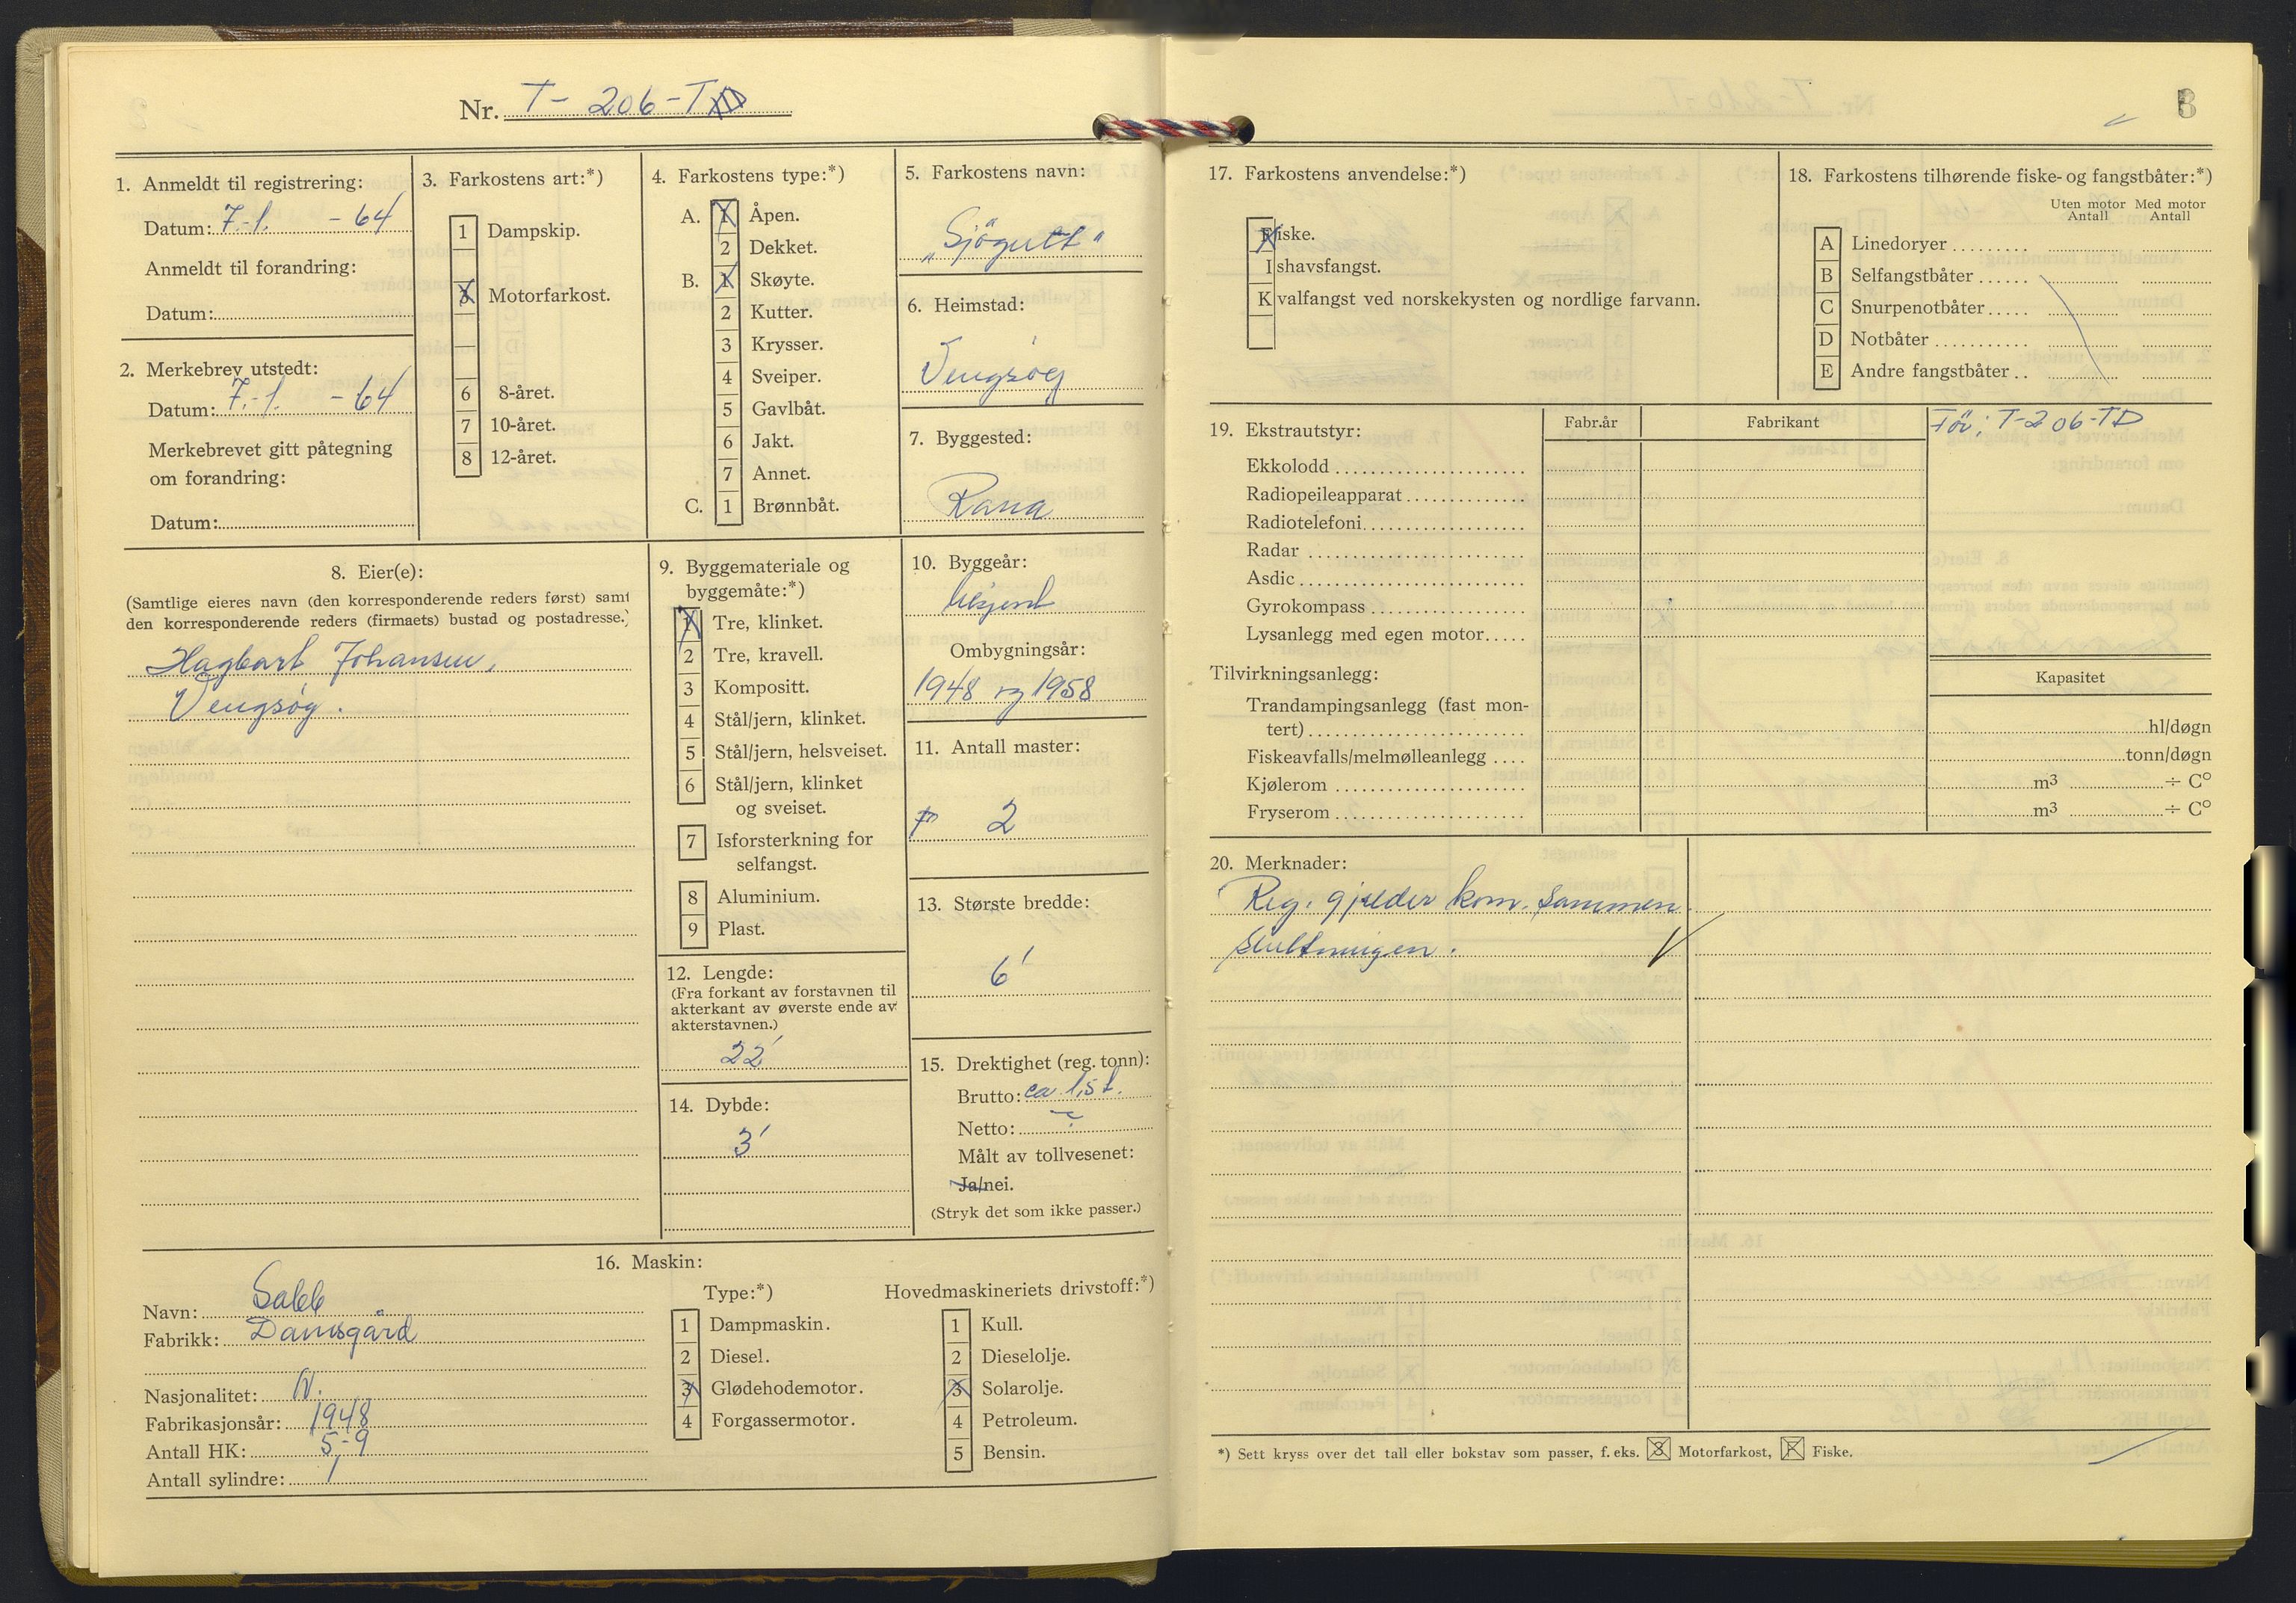 Nr. T- 206-TD
1. Anmeldt til registrering:
Datum: 7.-1. -64
Anmeldt til forandring:
Datum:
2. Merkebrev utstedt:
Datum: 7.-1. -64
Merkebrevet gitt påtegning
om forandring:
Datum:
3. Farkostens art:*)
1 Dampskip.
3 Motorfarkost.
6 8-året.
7 10-året.
8 12-året.
4. Farkostens type:*)
A. 1 Åpen.
2 Dekket.
B. 1 Skøyte.
2 Kutter.
3 Krysser.
4 Sveiper.
5 Gavlbåt.
6 Jakt.
7 Annet.
C. 1 Brønnbåt.
5. Farkostens navn:
„Sjögutt"
6. Heimstad:
Vengsøy
7. Byggested:
Rana
8. Eier(e):
(Samtlige eieres navn (den korresponderende reders først) samt
den korresponderende reders (firmaets) bustad og postadresse.)
Hagbart Johansen,
Vengsøy.
9. Byggemateriale og
byggemåte:*)
1 Tre, klinket.
2 Tre, kravell.
3 Kompositt.
4 Stål/jern, klinket.
5 Stål/jern, helsveiset.
6 Stål/jern, klinket
og sveiset.
7 Isforsterkning for
selfangst.
8 Aluminium.
9 Plast.
10. Byggeår:
Ombygningsår:
1948 og 1958
11. Antall master:
2
12. Lengde:
(Fra forkant av forstavnen til
akterkant av øverste ende av
akterstavnen.)
22'
13. Største bredde:
6'
14. Dybde:
3'
15. Drektighet (reg. tonn):
Brutto: ca 1,5 t.
Netto:
Målt av tollvesenet:
Ja/nei.
(Stryk det som ikke passer.)
16. Maskin:
Navn: Sabb
Fabrikk: Damsgård
Nasjonalitet: N.
Fabrikasjonsår: 1948
Antall HK: 5-9
Antall sylindre: 1
Type:*)
1 Dampmaskin.
2 Diesel.
3 Glødehodemotor.
4 Forgassermotor.
Hovedmaskineriets drivstoff:*)
1 Kull.
2 Dieselolje.
3 Solarolje.
4 Petroleum.
5 Bensin.
17. Farkostens anvendelse:*)
Fiske.
Ishavsfangst.
Kvalfangst ved norskekysten og nordlige farvann.
18. Farkostens tilhørende fiske- og fangstbåter:*)
Uten motor Med motor
Antall Antall
A Linedoryer
B Selfangstbåter
C Snurpenotbåter
D Notbåter
E Andre fangstbåter
19. Ekstrautstyr: Fabr.år Fabrikant
Før: T-206-TD
Ekkolodd
Radiopeileapparat
Radiotelefoni
Radar
Asdic
Gyrokompass
Lysanlegg med egen motor
Tilvirkningsanlegg: Kapasitet
Trandampingsanlegg (fast mon-
tert) hl/døgn
Fiskeavfalls/melmølleanlegg tonn/døgn
Kjølerom m³ ÷ C°
Fryserom m³ ÷ C°
20. Merknader:
Reg. gjelder kom. sammen
slutningen.
*) Sett kryss over det tall eller bokstav som passer, f. eks. 3 Motorfarkost, F Fiske.